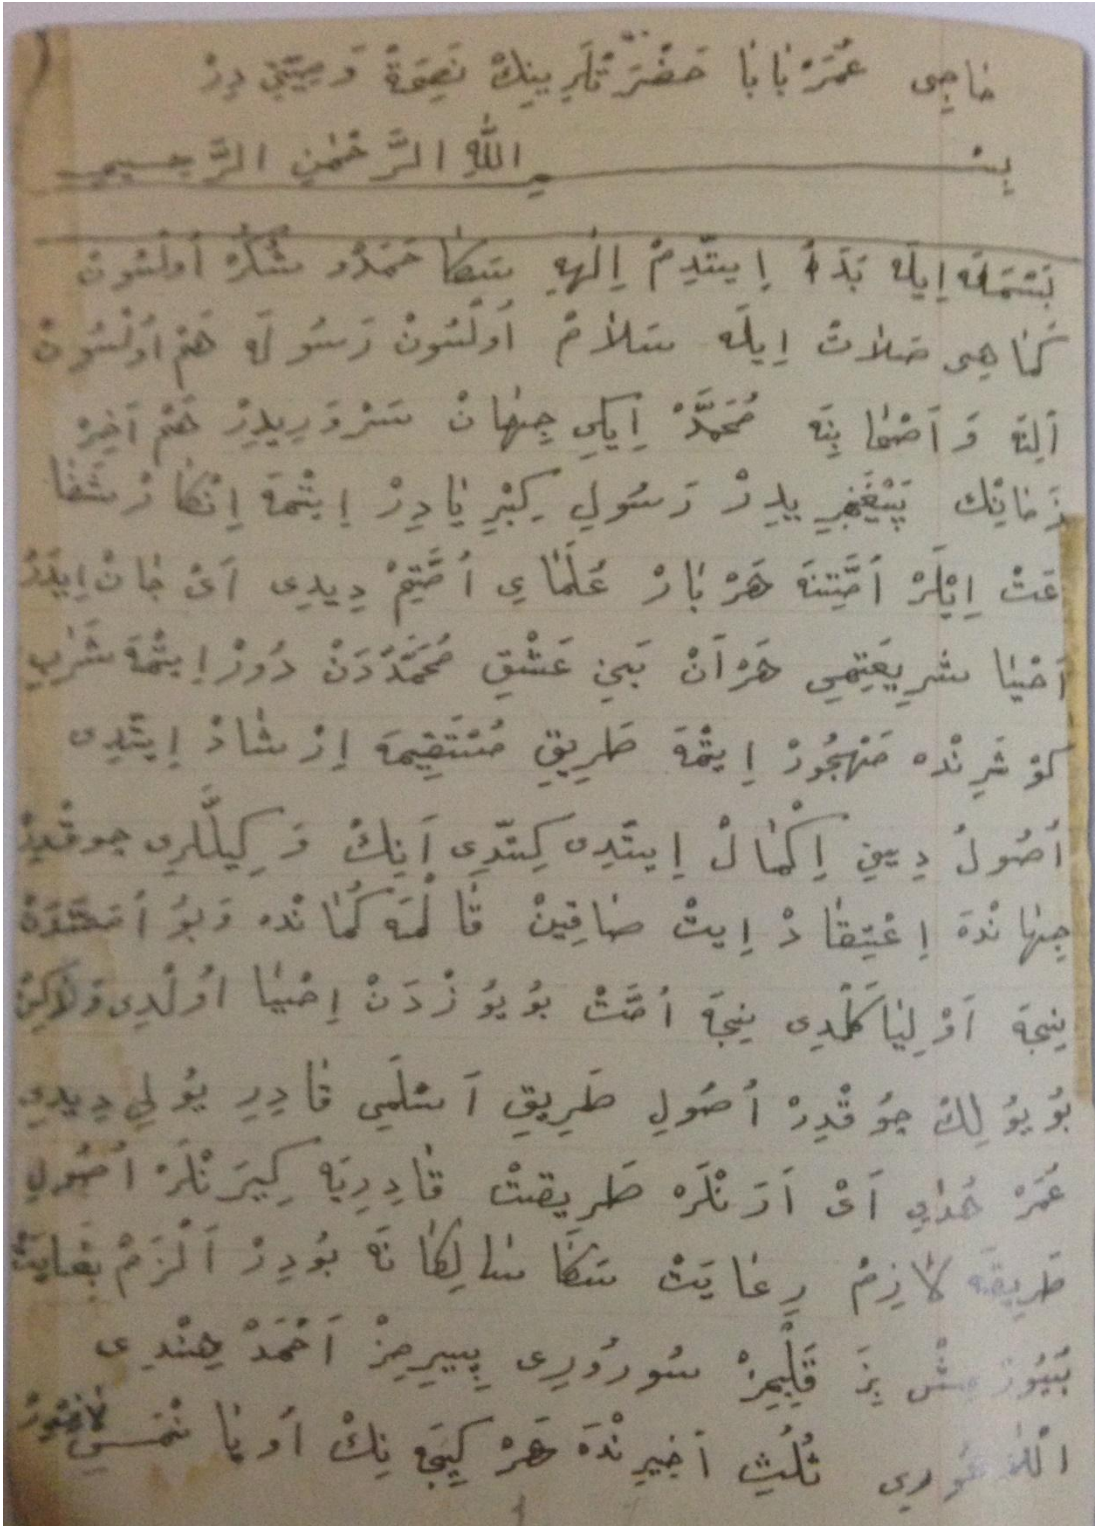 حاجى عُمَرْ بَابَا حَضْرَتْلَرِينِكْ نَصِحَةْ وَصِيَّتِ دِرْ
بِسْــــمِ اللّٰهِ الرَّحْمٰنِ الرَّحِيمِ
بَسْمَلَه اِيلَه بَدَأ اِيتّدِمْ اِلٰهِ سَكَا حَمْدُو شُكْرْ اُولْسُونْ
كَمَا هِى صَلَاتْ اِيلَه سَلَامْ اُولْسُونْ رَسُولَه هَمْ اُولْسُونْ
آلِنَه وَ اَصْحَابِنَه مُحَمَّدْ اِيكِي جِهَانْ سَرْوَرِيدِرْ هَمْ آخِرْ
زَمَانِكْ پَيْغَمْبَرِيدِرْ رَسُولِ كِبْرِيَادِرْ اِيتْمَه اِنْكَارْ شَفَا
عَتْ اِيلَرْ اُمَّتِنَه هَرْ بَارْ عُلَمَايِ اُمَّتِمْ دِيدِى اَىْ جَانْ اِيدَرْ
اَحْيَا شَرِيعَتِمِي هَرْ آنْ نَبِي عَشْقِ مُحَمَّدْدَنْ دُورْ اِيتْمَه شَرَابِ
كَوْثَرِنْدَه مَهْجُورْ اِيتْمَه طَرِيقِ مُسْتَقِيمَه اِرْشَادْ اِيتّدِى
اُصُولُ دِينِ اِكْمَالْ اِيتّدِى كِتّدِى آنِكْ وَكِيلَّرِى چوقْدِرْ
جِهَانْدَه اِعْتِقَادْ اِيتْ صَاقِينْ قَالْمَه كُمَانْدَه وَبُو اُمَّتْدَنْ
نِيجَه اَوْلِيَا كَلْدِى نِيجَه اُمَّتْ بُويُوزْدَنْ اِحْيَا اُولْدِى وَلَاكِنْ
بُويُولِكْ چُوقْدِرْ اُصُولِ طَرِيقِ اَسْلَمِي قَادِرِ يُولِي دِيدِي
عُمَرْ هُدَايِي اَىْ اَرَنْلَرْ طَرِيقَتْ قَادِرِيَه كِيرَنْلَرْ اُصُولِ
طَرِيقَه لَازِمْ رِعَايَتْ سَكَا سَالِكَانَه بُودِرْ اَلْزَمْ بِغَايَتْ
بُيُورْمِشْ بِزَ قَلْبِمِزْ سُورُورِى پِيرِمِزْ اَحْمَدْ هِنْدِى
ثُلُثِ اَخِيرِنْدَه هَرْ كِيجَه نِكْ اُويَا